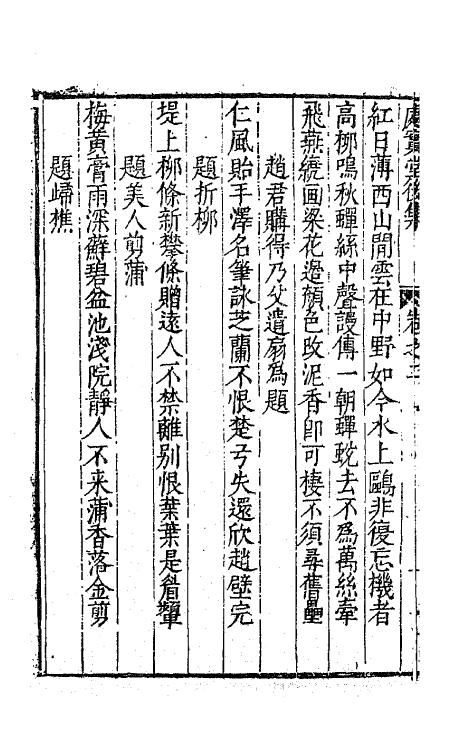 處實堂後集 卷之二
紅日薄西山閒雲在中野如今水上鷗非復忘機者
高柳鳴秋蟬絲中聲謾傳一朝蟬蛻去不為萬絲牽
飛燕繞画梁花邊顏色改泥香即可棲不須尋舊壘
趙君購得乃父遺扇為題
仁風貽手澤名筆詠芝蘭不恨楚弓失還欣趙璧完
題折柳
堤上柳條新攀條贈遠人不禁離别恨葉葉是眉顰
題美人剪蒲
梅黃膏雨深蘇碧盆池淺院靜人不来蒲香落金剪
題歸樵